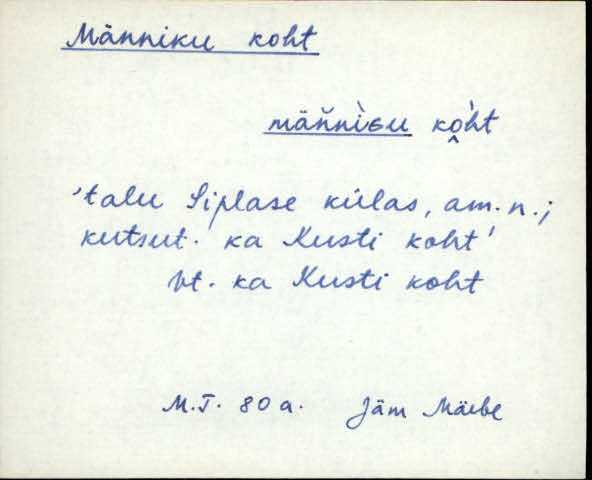 Männiku koht
mäňnìɢu kò̭ht
'talu Siplase külas, am. n.;
kutsut. ka Kusti koht'
vt. ka Kusti koht
M.T. 80 a. Jäm Mäebe